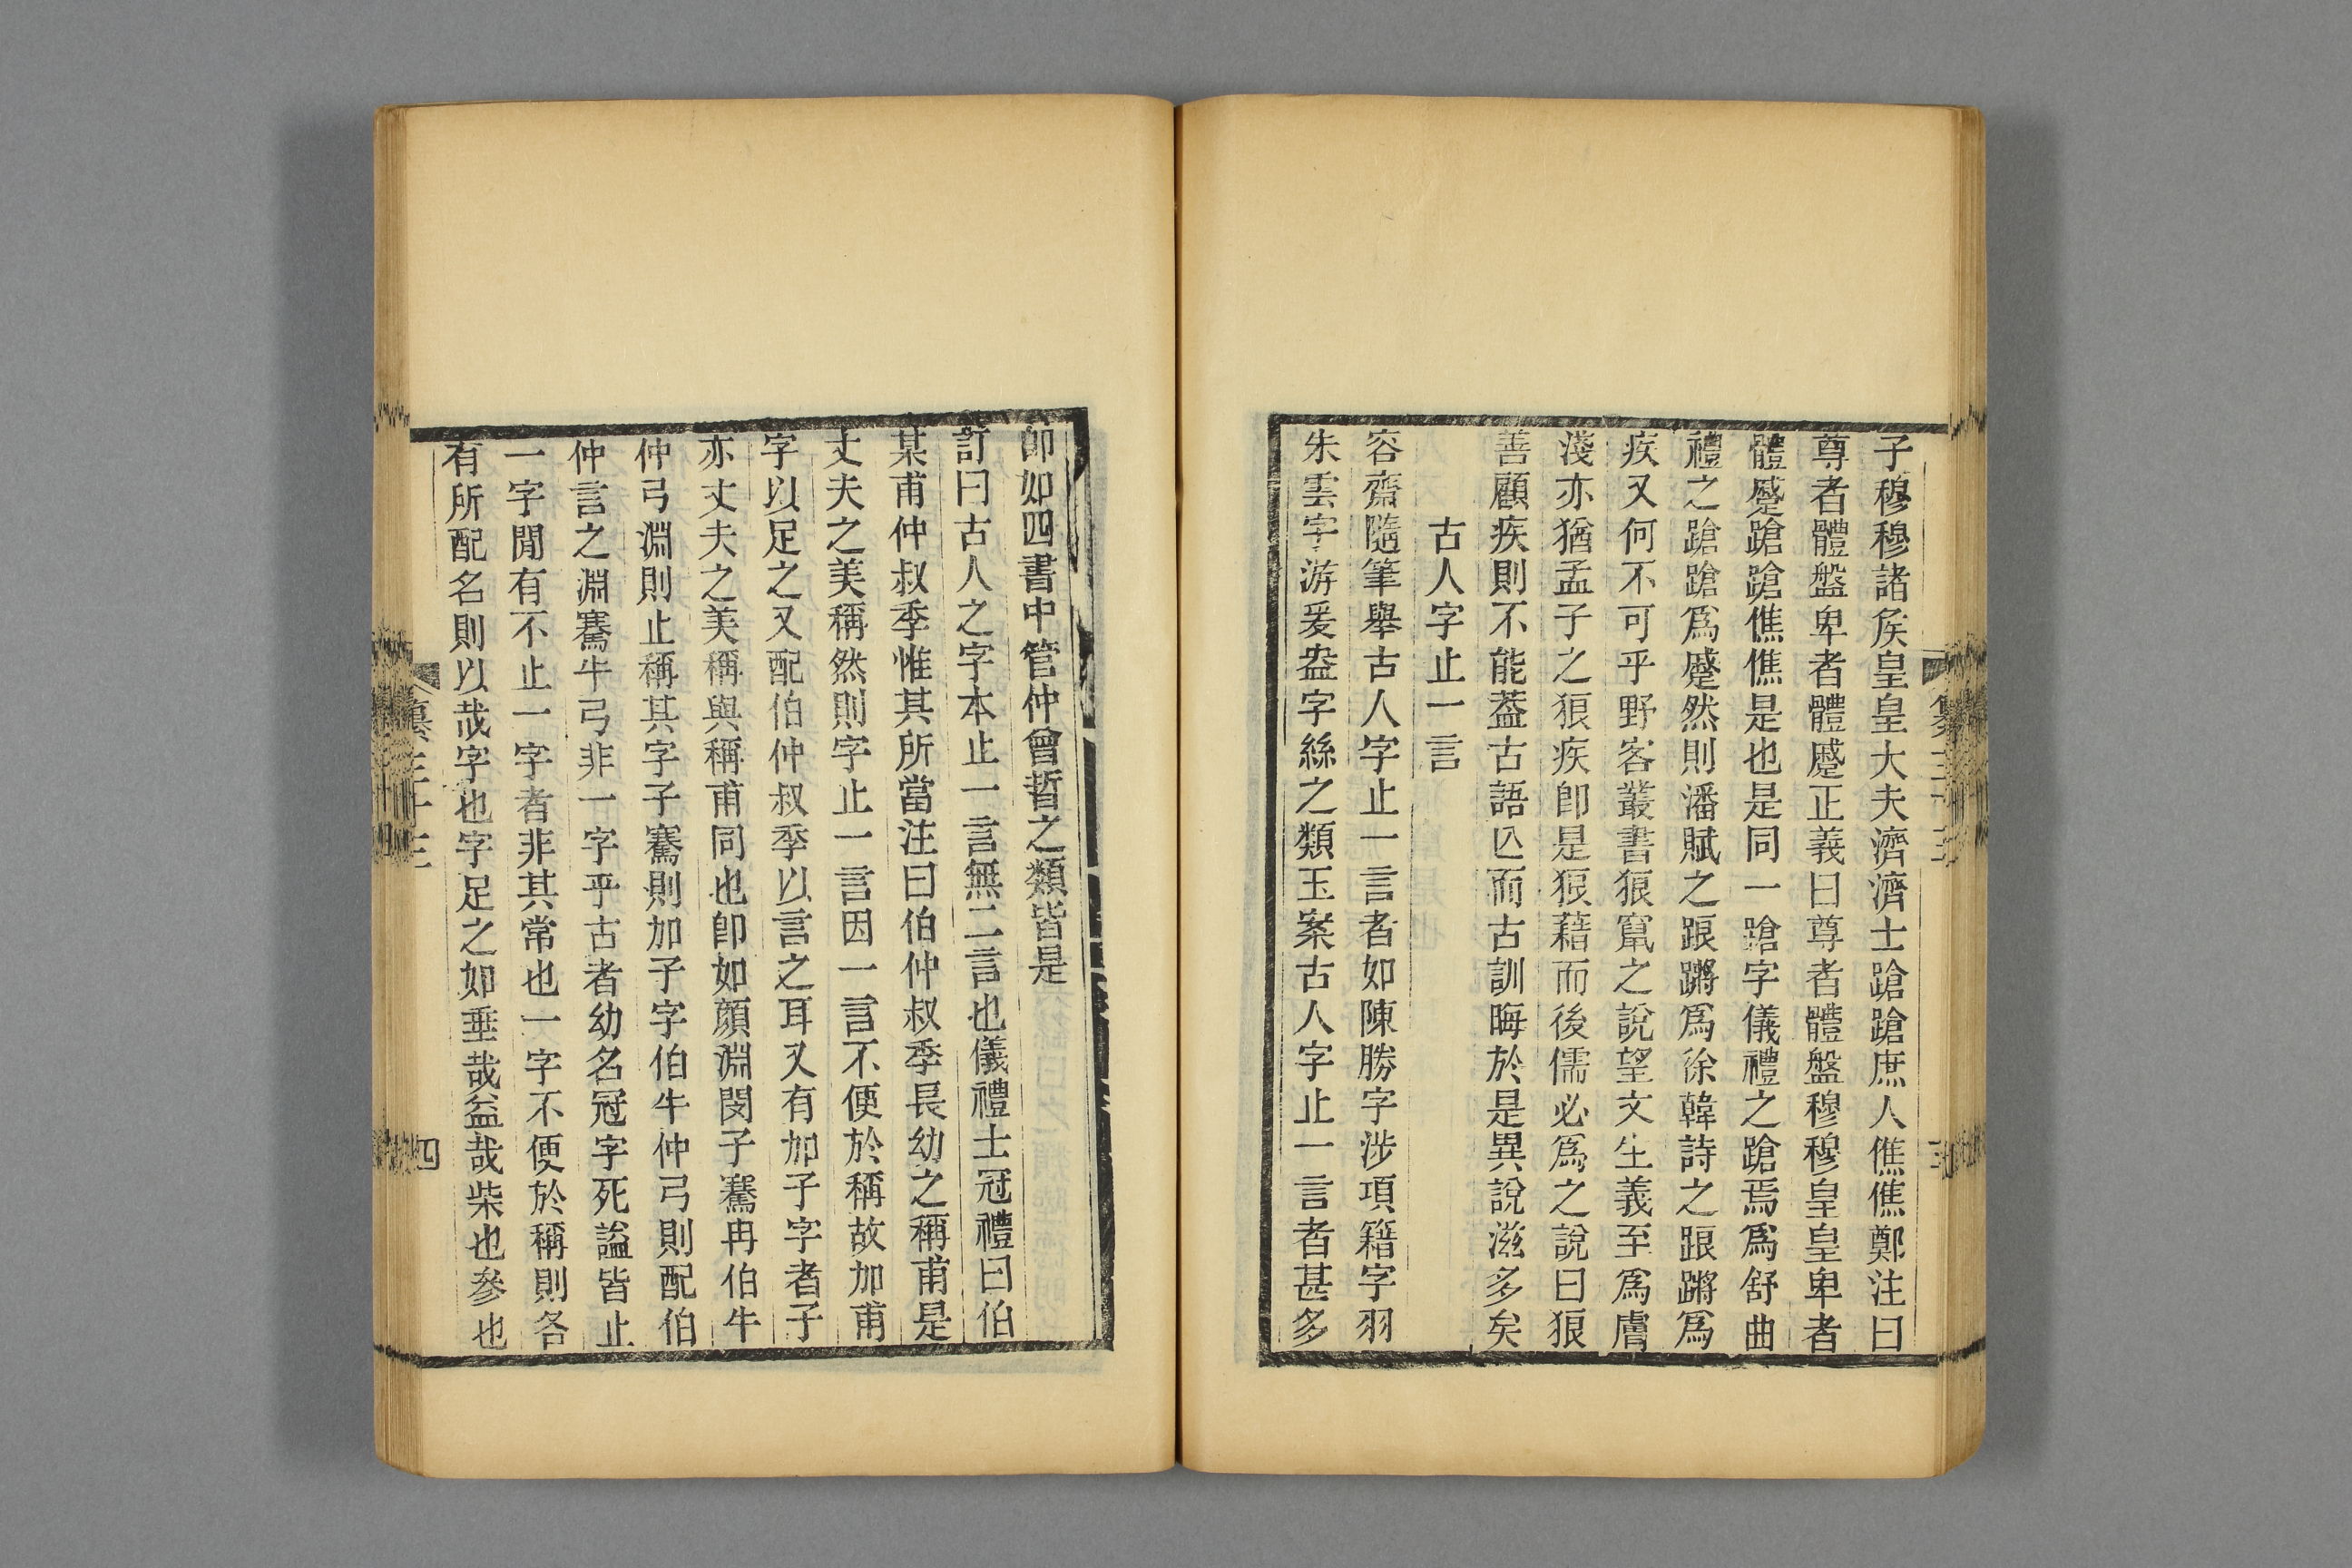 子穆穆諸矦皇皇大夫濟濟士蹌蹌庶人僬僬鄭注曰
尊者體盤卑者體蹙正義曰尊者體盤穆穆皇皇卑者
體蹙蹌蹌僬僬是也是同一蹌字儀禮之蹌焉爲舒曲
禮之蹌蹌爲蹙然則潘賦之踉蹡爲徐韓詩之踉蹡爲
疾又何不可乎野客叢書狼竄之說望文生義至爲膚
淺亦猶孟子之狼疾卽是狠藉而後儒必爲之說曰狼
善顧疾則不能葢古語亾而古訓晦於是異說滋多矣
古人字止一言
容齋隨筆舉古人字止一言者如陳勝字涉項籍字羽
朱雲字游爰盎字絲之類玉案古人字止一言者甚多
卽如四書中管仲曾晳之類皆是
訂曰古人之字本止一言無二言也儀禮士冠禮曰伯
某甫仲叔季惟其所當注曰伯仲叔季長幼之稱甫是
丈夫之美稱然則字止一言因一言不便於稱故加甫
字以足之又配伯仲叔季以言之耳又有加子字者子
亦丈夫之美稱與稱甫同也卽如顏淵閔子騫冉伯牛
仲弓淵則止稱其字子騫則加子字伯牛仲弓則配伯
仲言之淵騫牛弓非一字乎古者幼名冠字死謚皆止
一字閒有不止一字者非其常也一字不便於稱則各
有所配名則以哉字也字足之如垂哉益哉柴也參也
纂三十三
四